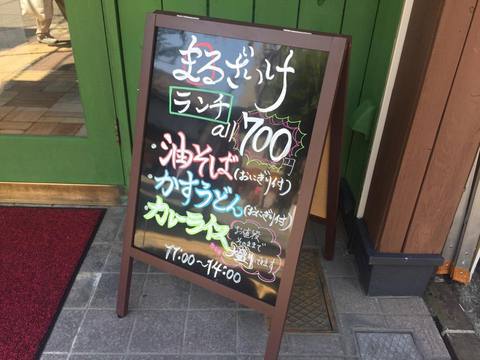 まるざいけ
ランチ
all 700円
・油そば(おにぎり付)
・かすうどん(おにぎり付)
カレーライス
お値段
そのまま
11:00〜14:00